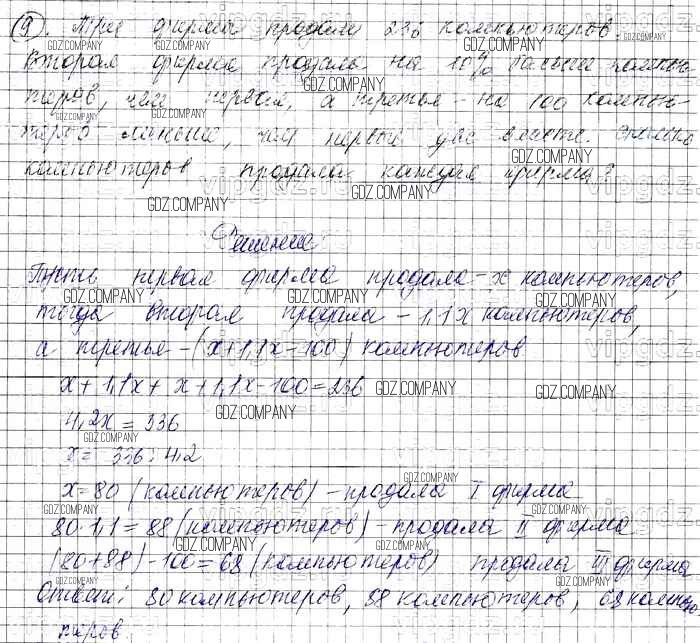 9. Три фирмы продали 236 компьютеров.
Вторая фирма продала на 10% больше компью-
теров, чем первая, а третья - на 100 компью-
теров меньше, чем первые две вместе. Сколько
компьютеров продала каждая фирма?
Решение
Пусть первая фирма продала - x компьютеров,
тогда вторая продала - 1,1x компьютеров,
а третья - (x+1,1x-100) компьютеров
x + 1,1x + x + 1,1x - 100 = 236
4,2x = 336
x = 336 : 4,2
x = 80 (компьютеров) - продала I фирма
80 · 1,1 = 88 (компьютеров) - продала II фирма
(80+88) - 100 = 68 (компьютеров) продала III фирма
Ответ: 80 компьютеров, 88 компьютеров, 68 компью-
теров